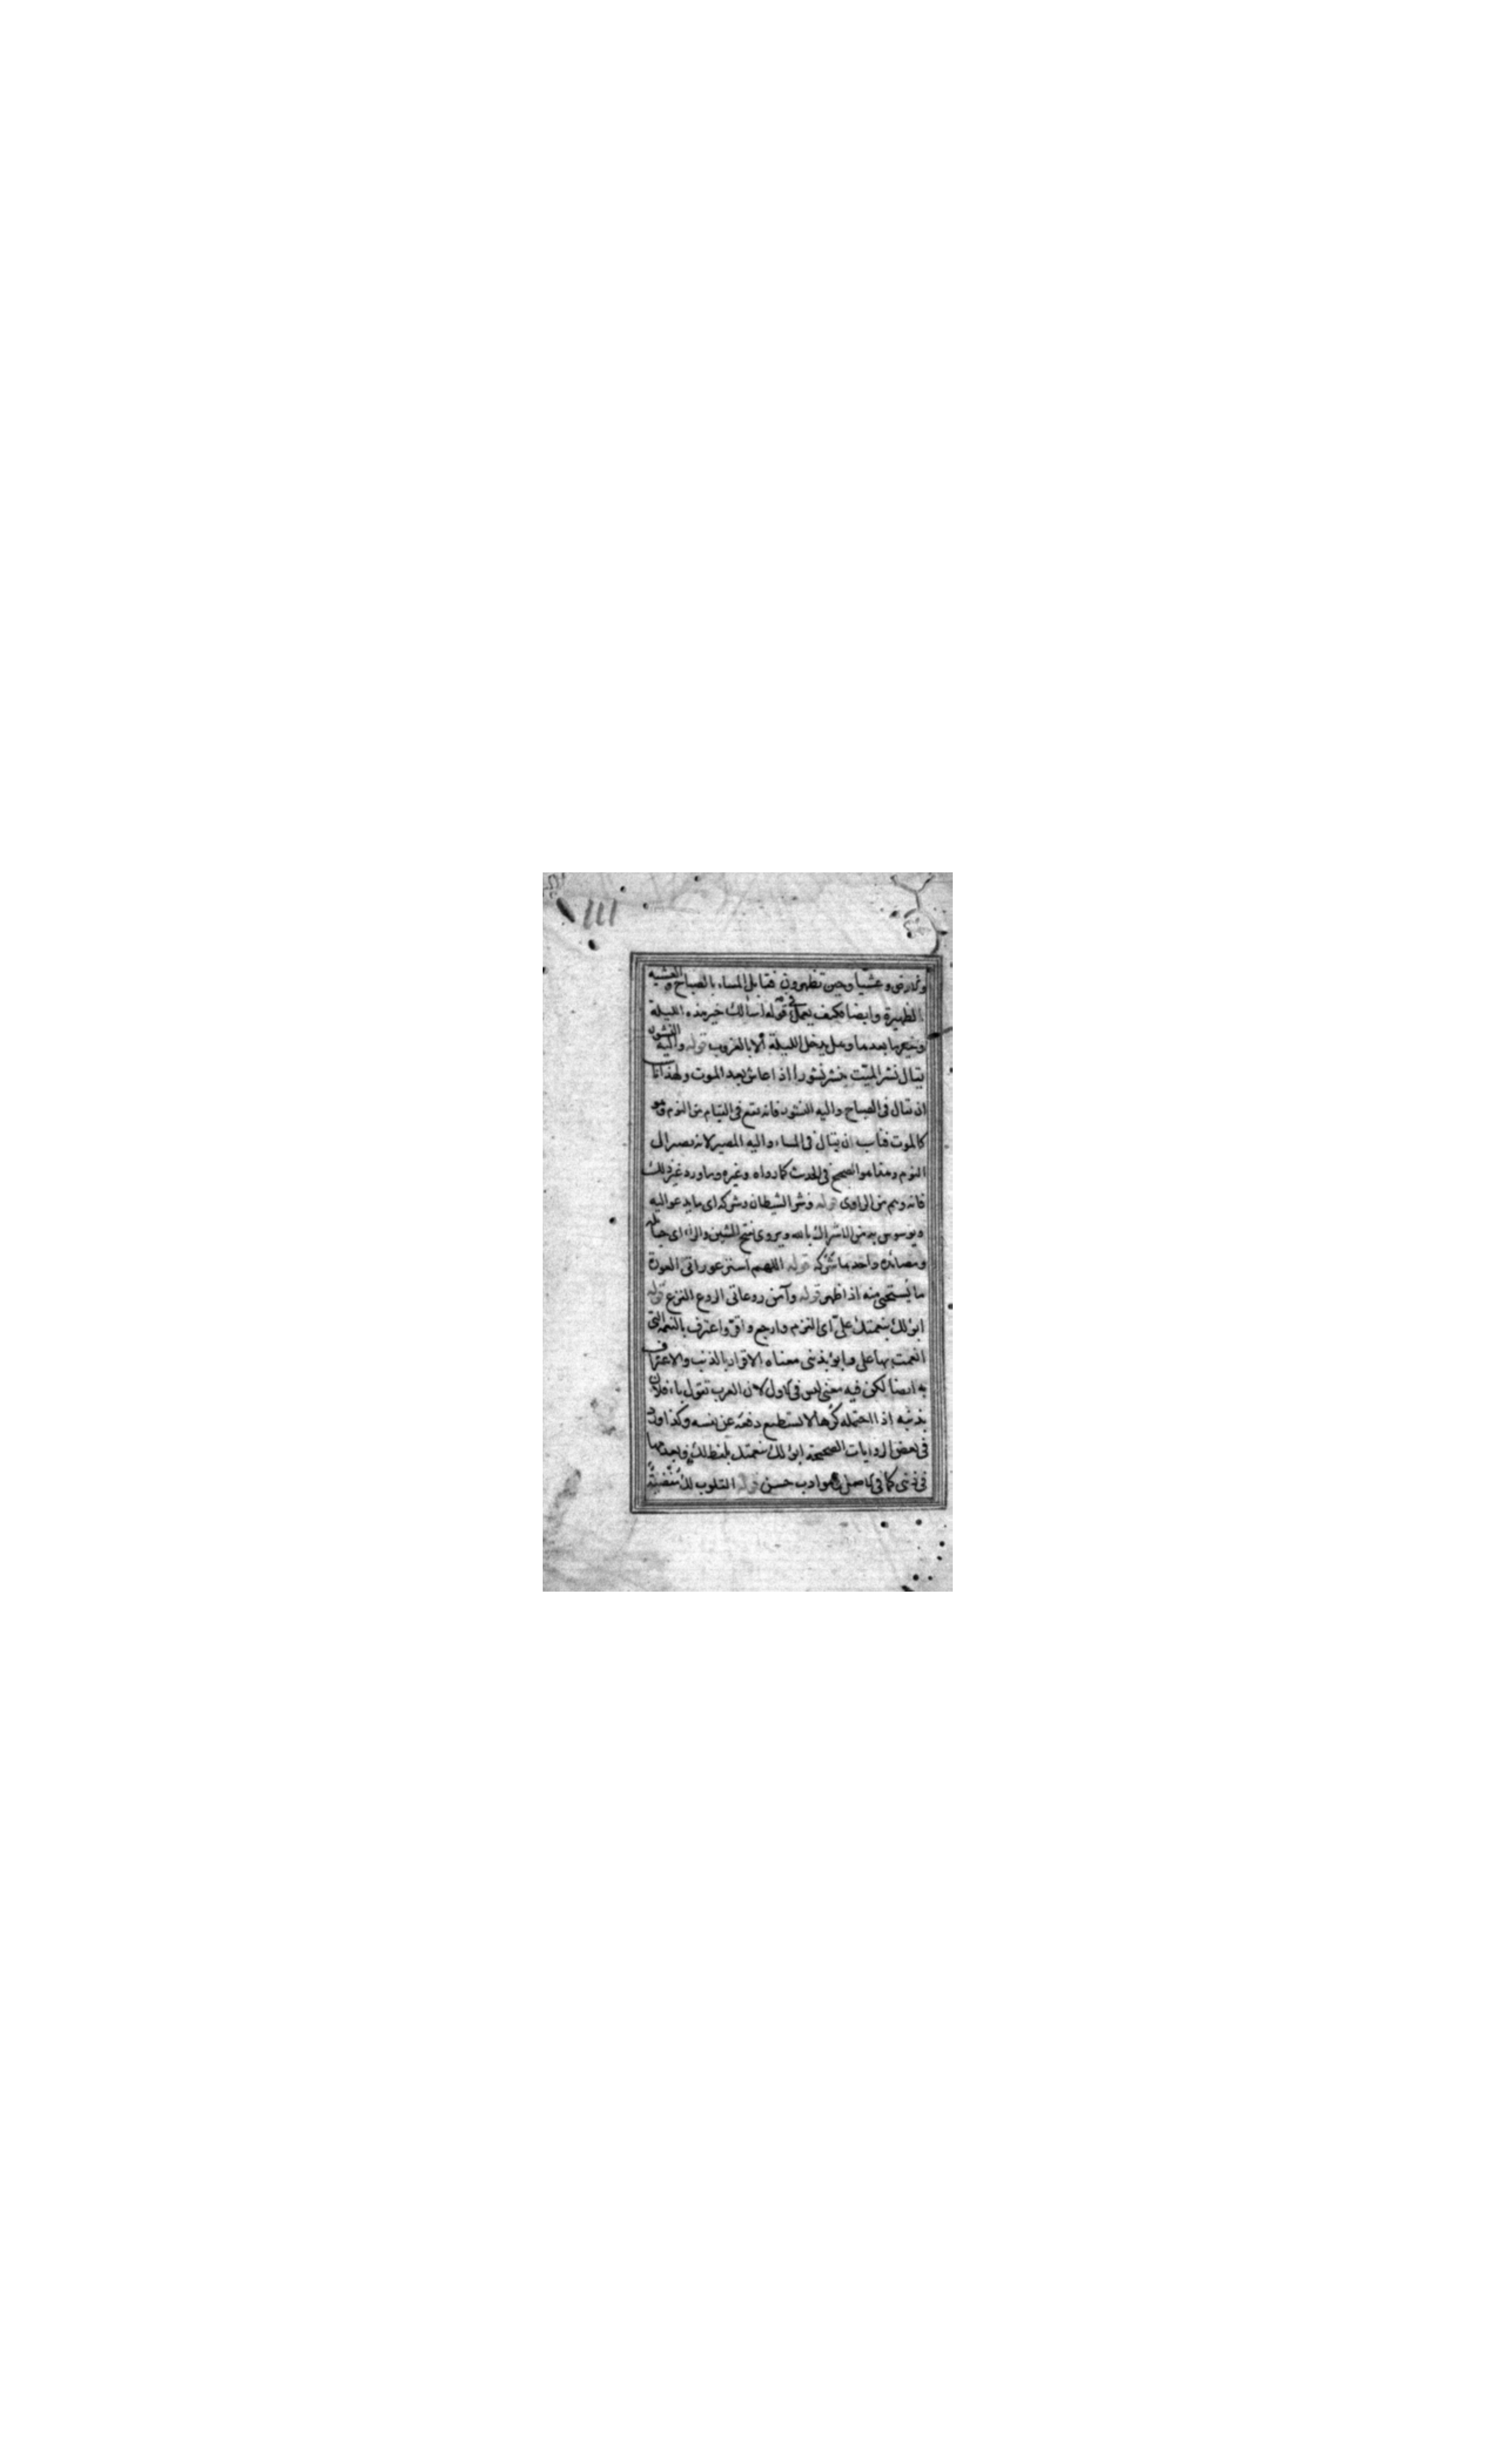 والارض وعشيا وحين تظهرون فقابل المساء بالصباح والعشية
الظهيرة وايضا فكيف يعمل في قوله اسالك خير هذه الليلة
وخير ما بعدها وهل يدخل الليلة الا بالغروب قوله واليه النشور
يقال نشر الميت ينشر نشورا اذا عاش بعد الموت ولهذا ناسب
ان يقال في الصباح واليه النشور فانه يقع في القيام من النوم وهو
كالموت فناسب ان يقال في المساء واليه المصير لانه يصير الى
النوم وهذا هو الصحيح في الحديث كما رواه وغيره وما ورد غير ذلك
فانه وهم من الراوي قوله وشر الشيطان وشركه اي ما يدعو اليه
ويوسوس به من الاشراك بالله ويروى بفتح الشين والراء اي حبائله
ومصائده واحدها شركة قوله اللهم استر عوراتي العورة
ما يستحيى منه اذا ظهر قوله وآمن روعاتي الروع الفزع قوله
ابؤ لك بنعمتك علي اي التزم وارجع واقر واعترف بالنعمة التي
انعمت بها علي وابؤ بذنبي معناه الاقرار بالذنب والاعتراف
به ايضا لكن فيه معنى ليس في الاول لان العرب تقول باء فلان
بذنبه اذا احتمله كرها لا يستطيع دفعه عن نفسه وكذا ورد
في بعض الروايات الصحيحة ابؤ لك بنعمتك بلفظ لك وبعدمها
في ذنبي كما في الاصل وهو ادب حسن قوله القلوب لك مفضية
١١١